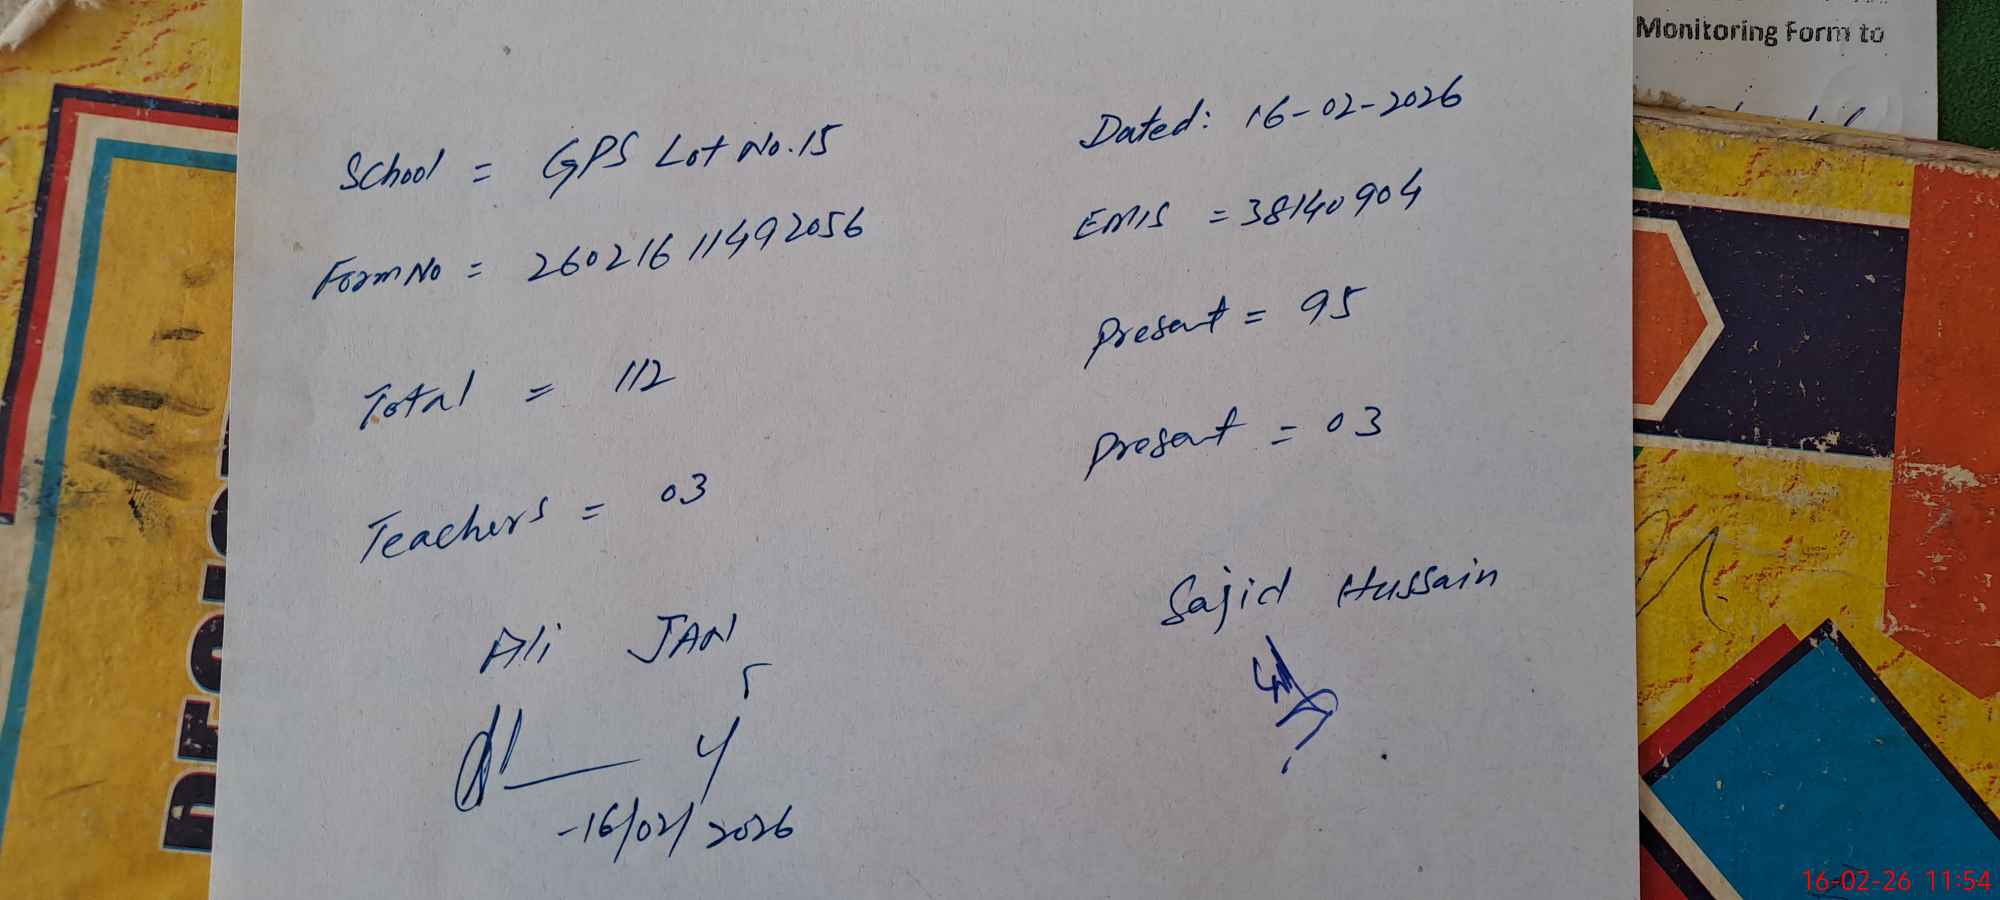 Monitoring Form to
School = GPS Lot No.15
Dated: 16-02-2026
Form No = 26021611492056
EMIS = 38140904
Total = 112
Present = 95
Teachers = 03
Present = 03
Ali JAN
Sajid Hussain
-16/02/2026
16-02-26 11:54